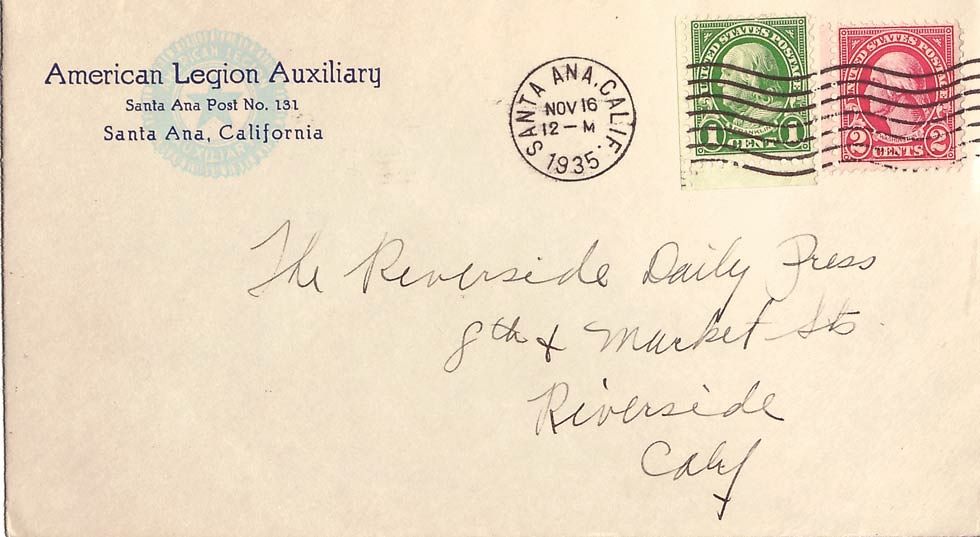 American Legion Auxiliary
Santa Ana Post No. 131
Santa Ana, California
AMERICAN LEGION
AUXILIARY
SANTA ANA, CALIF.
NOV 16
12 – M
1935.
UNITED STATES POSTAGE
FRANKLIN
1 CENT 1
UNITED STATES POSTAGE
WASHINGTON
2 CENTS 2
The Riverside Daily Press
8th & Market Sts.
Riverside
Calif